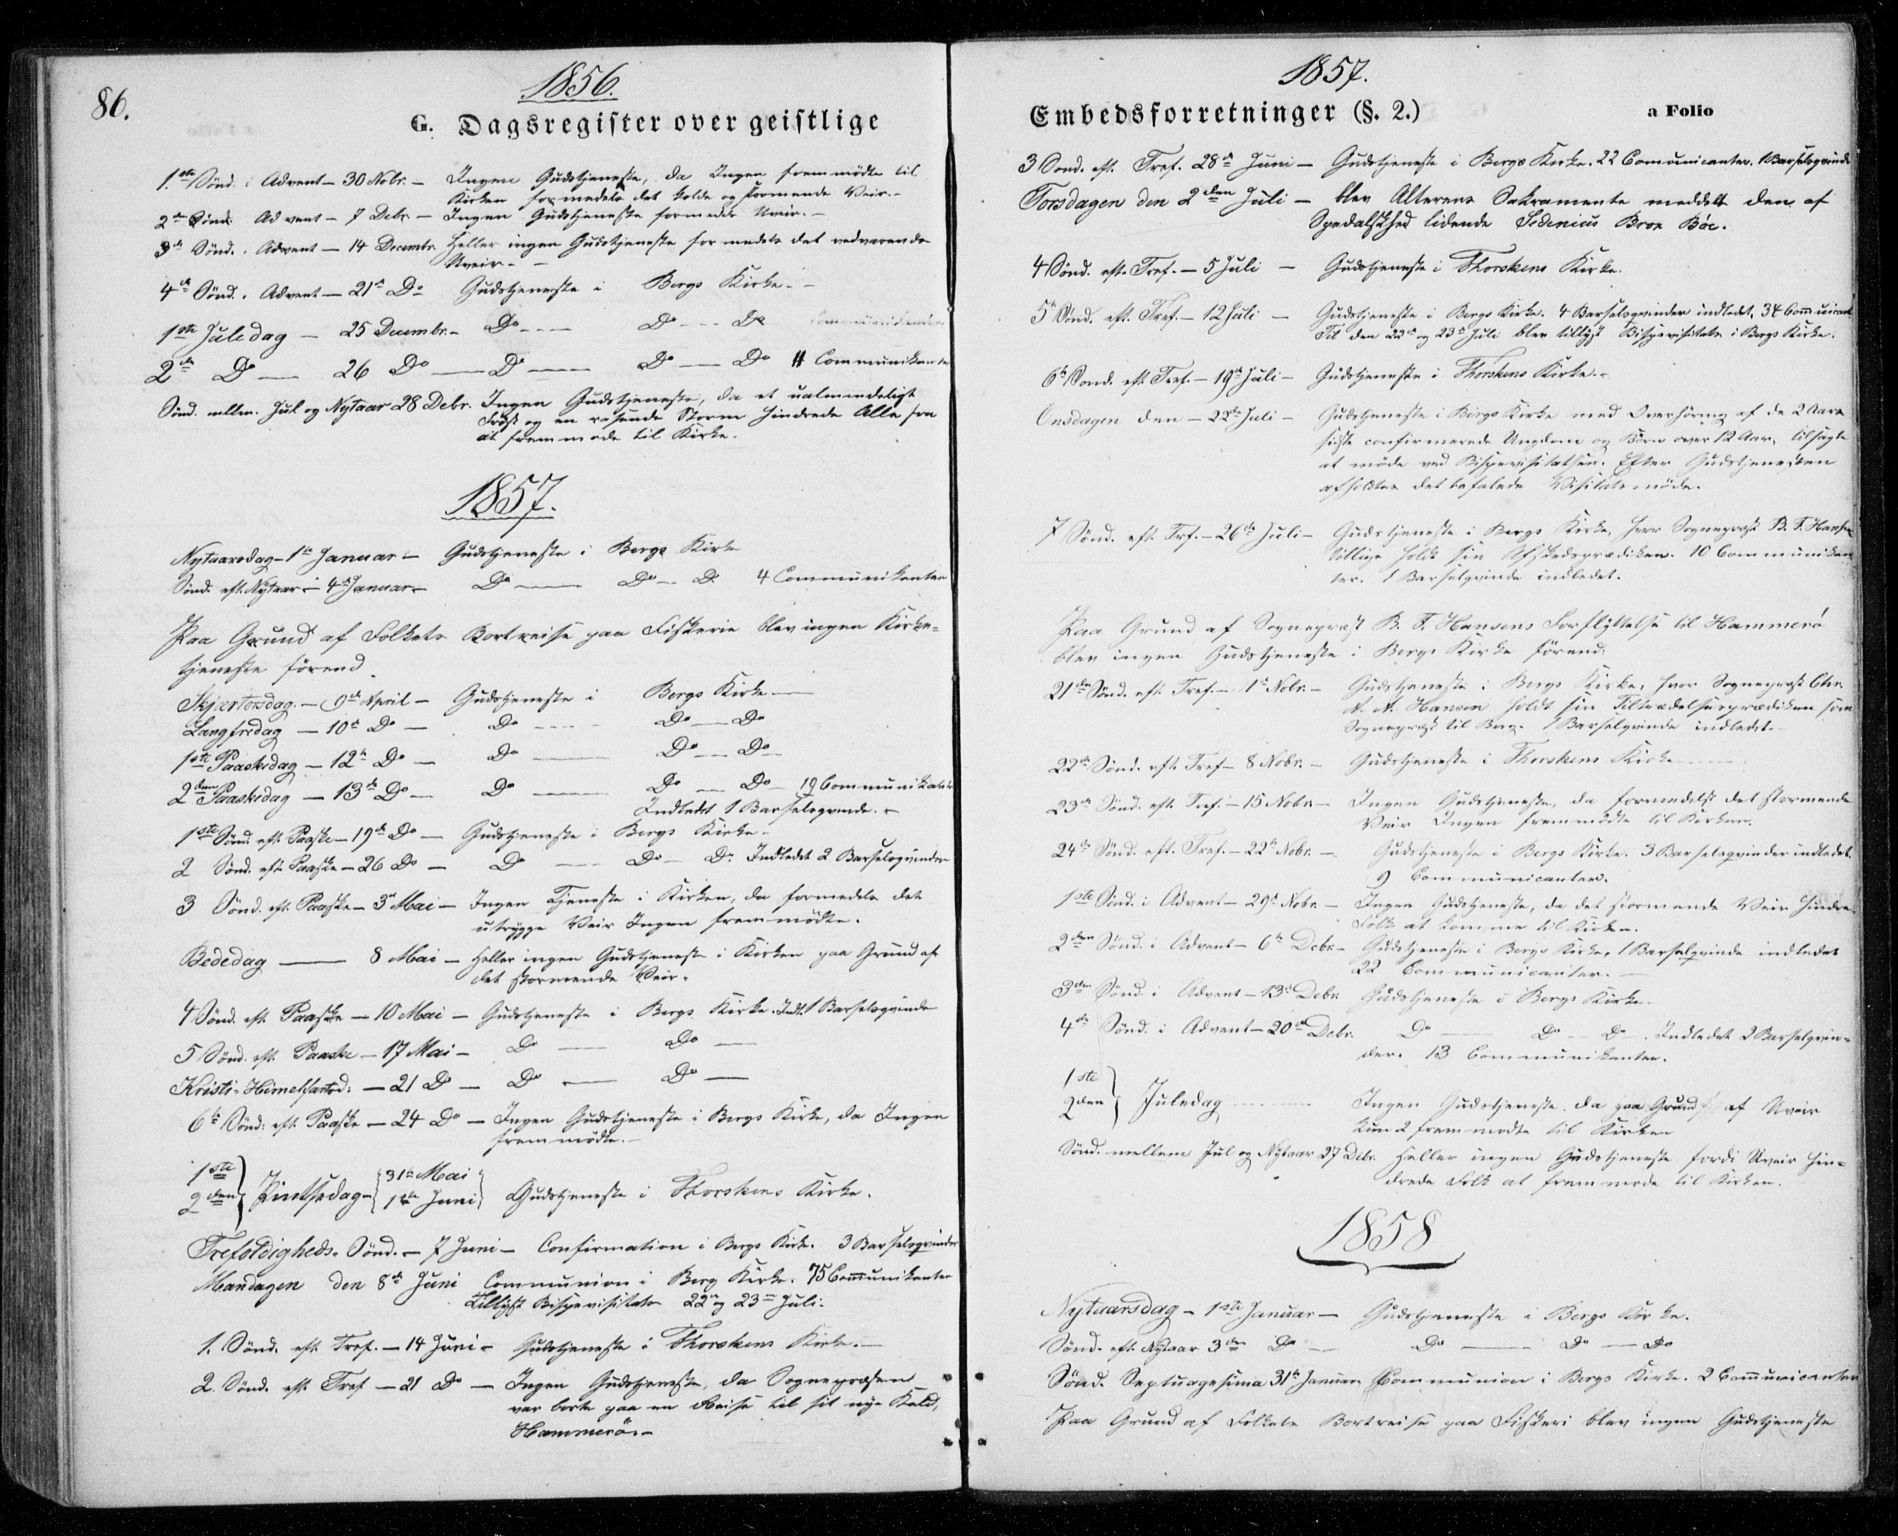 86.
1856.
G. Dagsregister over geistlige
1ste Sønd. i Advent – 30 Nobr. – Ingen Gudstjeneste, da Ingen fremmødte til
Kirken formedels det kolde og stormende Veir. –
2den Sønd. Advent – 7 Debr – Ingen Gudstjeneste formedels Uveir. –
3de Sønd. i Advent – 14 Decembr. Heller ingen Gudstjeneste formedels det vedvarende
Uveir. –
4de Sønd. i Advent – 21de Do Gudstjeneste i Bergs Kirke. –
1ste Juledag – 25 Decembr. – Do --- Do --- Do
2den Do — 26 Do — Do — Do — Do 11 Communikanter
Sønd. mellm. Jul og Nytaar 28 Debr. Ingen Gudstjeneste, da et ualmindeligt
Frost og en rasende Storm hindrede Alle fra
at fremmøde til Kirke.
1857.
Nytaarsdag – 1ste Januar – Gudstjeneste i Bergs Kirke
Sønd. eft. Nytaar – 4de Januar – Do — Do -- Do 4 Communikanter
Paa Grund af Folkets Bortreise paa Fiskerie blev ingen Kirke-
tjeneste førend
Skjærtorsdag – 9de April – Gudstjeneste i Bergs Kirke —
Langfredag – 10de Do – Do ---- Do — Do
1ste Paaskedag – 12te Do – Do — Do -- Do
2den Paaskedag – 13de Do – Do — Do — Do 19 Communikanter
Indledet 1 Barselqvinde. –
1ste Sønd. eft. Paaske – 19de Do – Gudstjeneste i Bergs Kirke. –
2 Sønd. eft. Paaske – 26 Do – Do — Do – Do. Indledet 2 Barselsqvinder
3 Sønd. eft. Paaske – 3de Mai – Ingen Tjeneste i Kirken, da formedels det
utrygge Veir Ingen fremmødte.
Bededag — 8 Mai – Heller ingen Gudstjeneste i Kirken paa Grund af
det stormende Veir.
4 Sønd. eft. Paaske – 10 Mai – Gudstjeneste i Bergs Kirke. Indl. 1 Barselsqvinde
5 Sønd. eft. Paaske – 17 Mai – Do — Do —
Kristi-Himelfartsd: – 21 Do – Do — Do —
6te Sønd. eft. Paaske – 24 Do – Ingen Gudstjeneste i Bergs Kirke, da Ingen
fremmødte. –
1ste
2den } Pintsedag – { 31te Mai
1ste Juni } Gudstjeneste i Thorskens Kirke.
Trefoldigheds-Sønd. – 7 Juni – Confirmation i Bergs Kirke. 3 Barselsqvinder
Mandagen den 8de Juni Communion i Berg Kirke. 75 Communikanter
Tillyst Bispevisitats 22de og 23de Juli.
1. Sønd. eft. Tref. – 14 Juni – Gudstjeneste i Thorskens Kirke. —
2. Sønd. eft. Tref – 21 Do – Ingen Gudstjeneste, da Sognepræsten
var borte paa en Reise til sit nye Kald,
Hammerö. –
1857.
Embedsforretninger (§. 2.)
a Folio
3 Sønd. eft. Tref. 28de Juni – Gudstjeneste i Bergs Kirke. 22 Comunicanter. 1 Barselsqvinde
Torsdagen den 2den Juli – blev Alterens Sakramente meddelt den af
Spedalskhed lidende Sedenius Bron Böe.
4 Sønd. eft. Tref. – 5 Juli – Gudstjeneste i Thorskens Kirke.
5te Sønd. eft. Tref. – 12 Juli – Gudstjeneste i Bergs Kirke. 4 Barselsqvinder indledet. 34 Comunicant
Til den 22de og 23de Juli blev tillyst Bispevisitats i Bergs Kirke.
6te Sønd. eft. Tref. – 19de Juli – Gudstjeneste i Thorskens Kirke. –
Onsdagen den – 22de Juli – Gudstjeneste i Bergs Kirke med Overhøring af de 2 Aars
sidste confirmerede Ungdom og Børn over 12 Aar, tilsagte
at møde ved Bispevisitatsen. Efter Gudstjenesten
afholdtes det befalede Visitatsmøde.
7 Sønd. eft. Trf. – 26de Juli – Gudstjeneste i Bergs Kirke, hvor Sognepræst B. F. Hansen
tillige holdt sin Afskedsprædiken. 10 Communikan
ter. 1 Barselqvinde indledet.
Paa Grund af Sognepræst B. F. Hansens Forflyttelse til Hammerö
blev ingen Gudstjeneste i Bergs Kirke förend:
21de Sønd. eft. Tref. – 1ste Nobr. – Gudstjeneste i Bergs Kirke, hvor Sognepræst Chr.
Hansen holdt sin Tiltrædelsesprædiken som
Sognepræst til Berg. 1 Barselqvinde indledet. –
22de Sønd. eft. Tref – 8 Nobr. – Gudstjeneste i Thorskens Kirke —
23de Sønd. eft. Tref. – 15 Nobr. – Ingen Gudstjeneste, da formedelst det stormende
Veir Ingen fremmødte til Kirken.
24de Sønd. eft. Tref. – 22de Nobr. – Gudstjeneste i Bergs Kirke. 3 Barselsqvinder indledet.
9 Communicanter.
1ste Sønd. i Advent – 29de Nobr. – Ingen Gudstjeneste, da det stormende Veir hindre
Folk at komme til Kirken.
2den Sønd. i Advent – 6te Debr. – Gudstjeneste i Bergs Kirke, 1 Barselqvinde indledet
22 Communicanter. –
3den Sønd. i Advent – 13de Debr. Gudstjeneste i Bergs Kirke.
4de Sønd. i Advent – 20de Debr. Do — Do – Do. Indledet 2 Barselqvin-
der. 13 Communikanter.
1ste
2den } Juledag ---- Ingen Gudstjeneste, da paa Grund af Uveir
kun 2 fremmødte til Kirken
Sønd. mellem Jul og Nytaar 27 Debr. Heller ingen Gudstjeneste fordi Uveir hin-
drede Folk at fremmøde til Kirken.
1858
Nytaarsdag – 1ste Januar – Gudstjeneste i Bergs Kirke.
Sønd. eft. Nytaar 3den Do — Do — Do — Do
Sønd. Septuagesima 31te Januar Communion i Bergs Kirke. 2 Communicanter
Paa Grund af Folkets Bortreise paa Fiskeri blev ingen Gudstjeneste